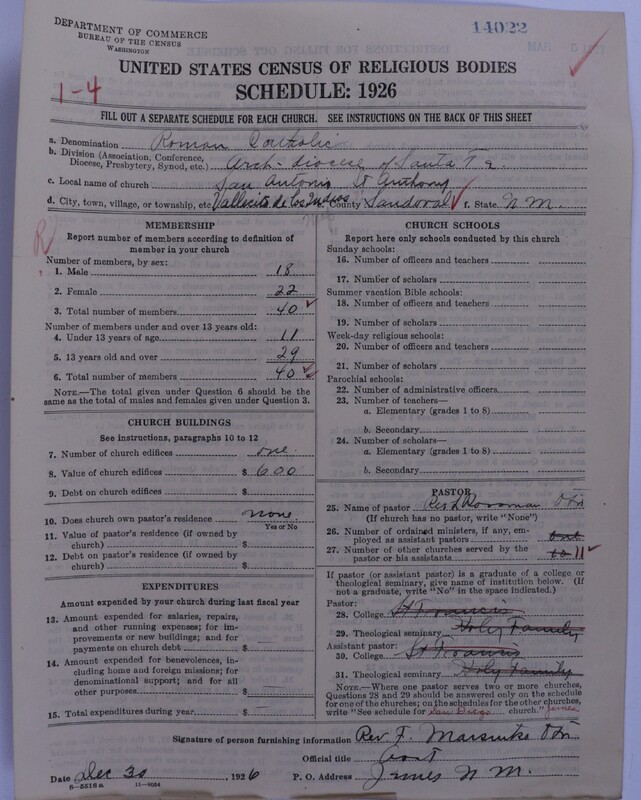 DEPARTMENT OF COMMERCE
BUREAU OF THE CENSUS
WASHINGTON
14022
UNITED STATES CENSUS OF RELIGIOUS BODIES
1-4
SCHEDULE: 1926
FILL OUT A SEPARATE SCHEDULE FOR EACH CHURCH. SEE INSTRUCTIONS ON THE BACK OF THIS SHEET
a. Denomination Roman Catholic
b. Division (Association, Conference, Diocese, Presbytery, Synod, etc.) Arch-diocese of Santa Fe
c. Local name of church San Antonio St Anthony
d. City, town, village, or township, etc. Vallecito de los e. County Sandoval f. State N M.
R
MEMBERSHIP
Report number of members according to definition of
member in your church
Number of members, by sex:
1. Male 18
2. Female 22
3. Total number of members 40
Number of members under and over 13 years old:
4. Under 13 years of age 11
5. 13 years old and over 29
6. Total number of members 40
NOTE.—The total given under Question 6 should be
same as the total of males and females given under Question 3.
CHURCH BUILDINGS
See instructions, paragraphs 10 to 12
7. Number of church edifices one
8. Value of church edifices $ 600
9. Debt on church edifices $
10. Does church own pastor's residence none
Yes or No
11. Value of pastor's residence (if owned by
church) $
12. Debt on pastor's residence (if owned by
church) $
EXPENDITURES
Amount expended by your church during last fiscal year
13. Amount expended for salaries, repairs,
and other running expenses; for im-
provements or new buildings; and for
payments on church debt $
14. Amount expended for benevolences, in-
cluding home and foreign missions; for
denominational support; and for all
other purposes $
15. Total expenditures during year $
CHURCH SCHOOLS
Report here only schools conducted by this church
Sunday schools:
16. Number of officers and teachers
17. Number of scholars
Summer vacation Bible schools:
18. Number of officers and teachers
19. Number of scholars
Week-day religious schools:
20. Number of officers and teachers
21. Number of scholars
Parochial schools:
22. Number of administrative officers
23. Number of teachers—
a. Elementary (grades 1 to 8)
b. Secondary
24. Number of scholars—
a. Elementary (grades 1 to 8)
b. Secondary
PASTOR
25. Name of pastor
(If church has no pastor, write "None")
26. Number of ordained ministers, if any, em-
ployed as assistant pastors one
27. Number of other churches served by the
pastor or his assistants 11
If pastor (or assistant pastor) is a graduate of a college or
theological seminary, give name of institution below. (If
not a graduate, write "No" in the space indicated.)
Pastor:
28. College St Francis
29. Theological seminary Holy Family
Assistant pastor:
30. College St Francis
31. Theological seminary Holy Family
NOTE.—Where one pastor serves two or more churches,
Questions 28 and 29 should be answered only on the schedule
for one of the churches; on the schedules for the other churches,
write "See schedule for San Diego church." Jemez
Signature of person furnishing information Rev. F.
Official title
Date Dec 30, 1926 P. O. Address Jemes N M.
8-5518a 11-9054